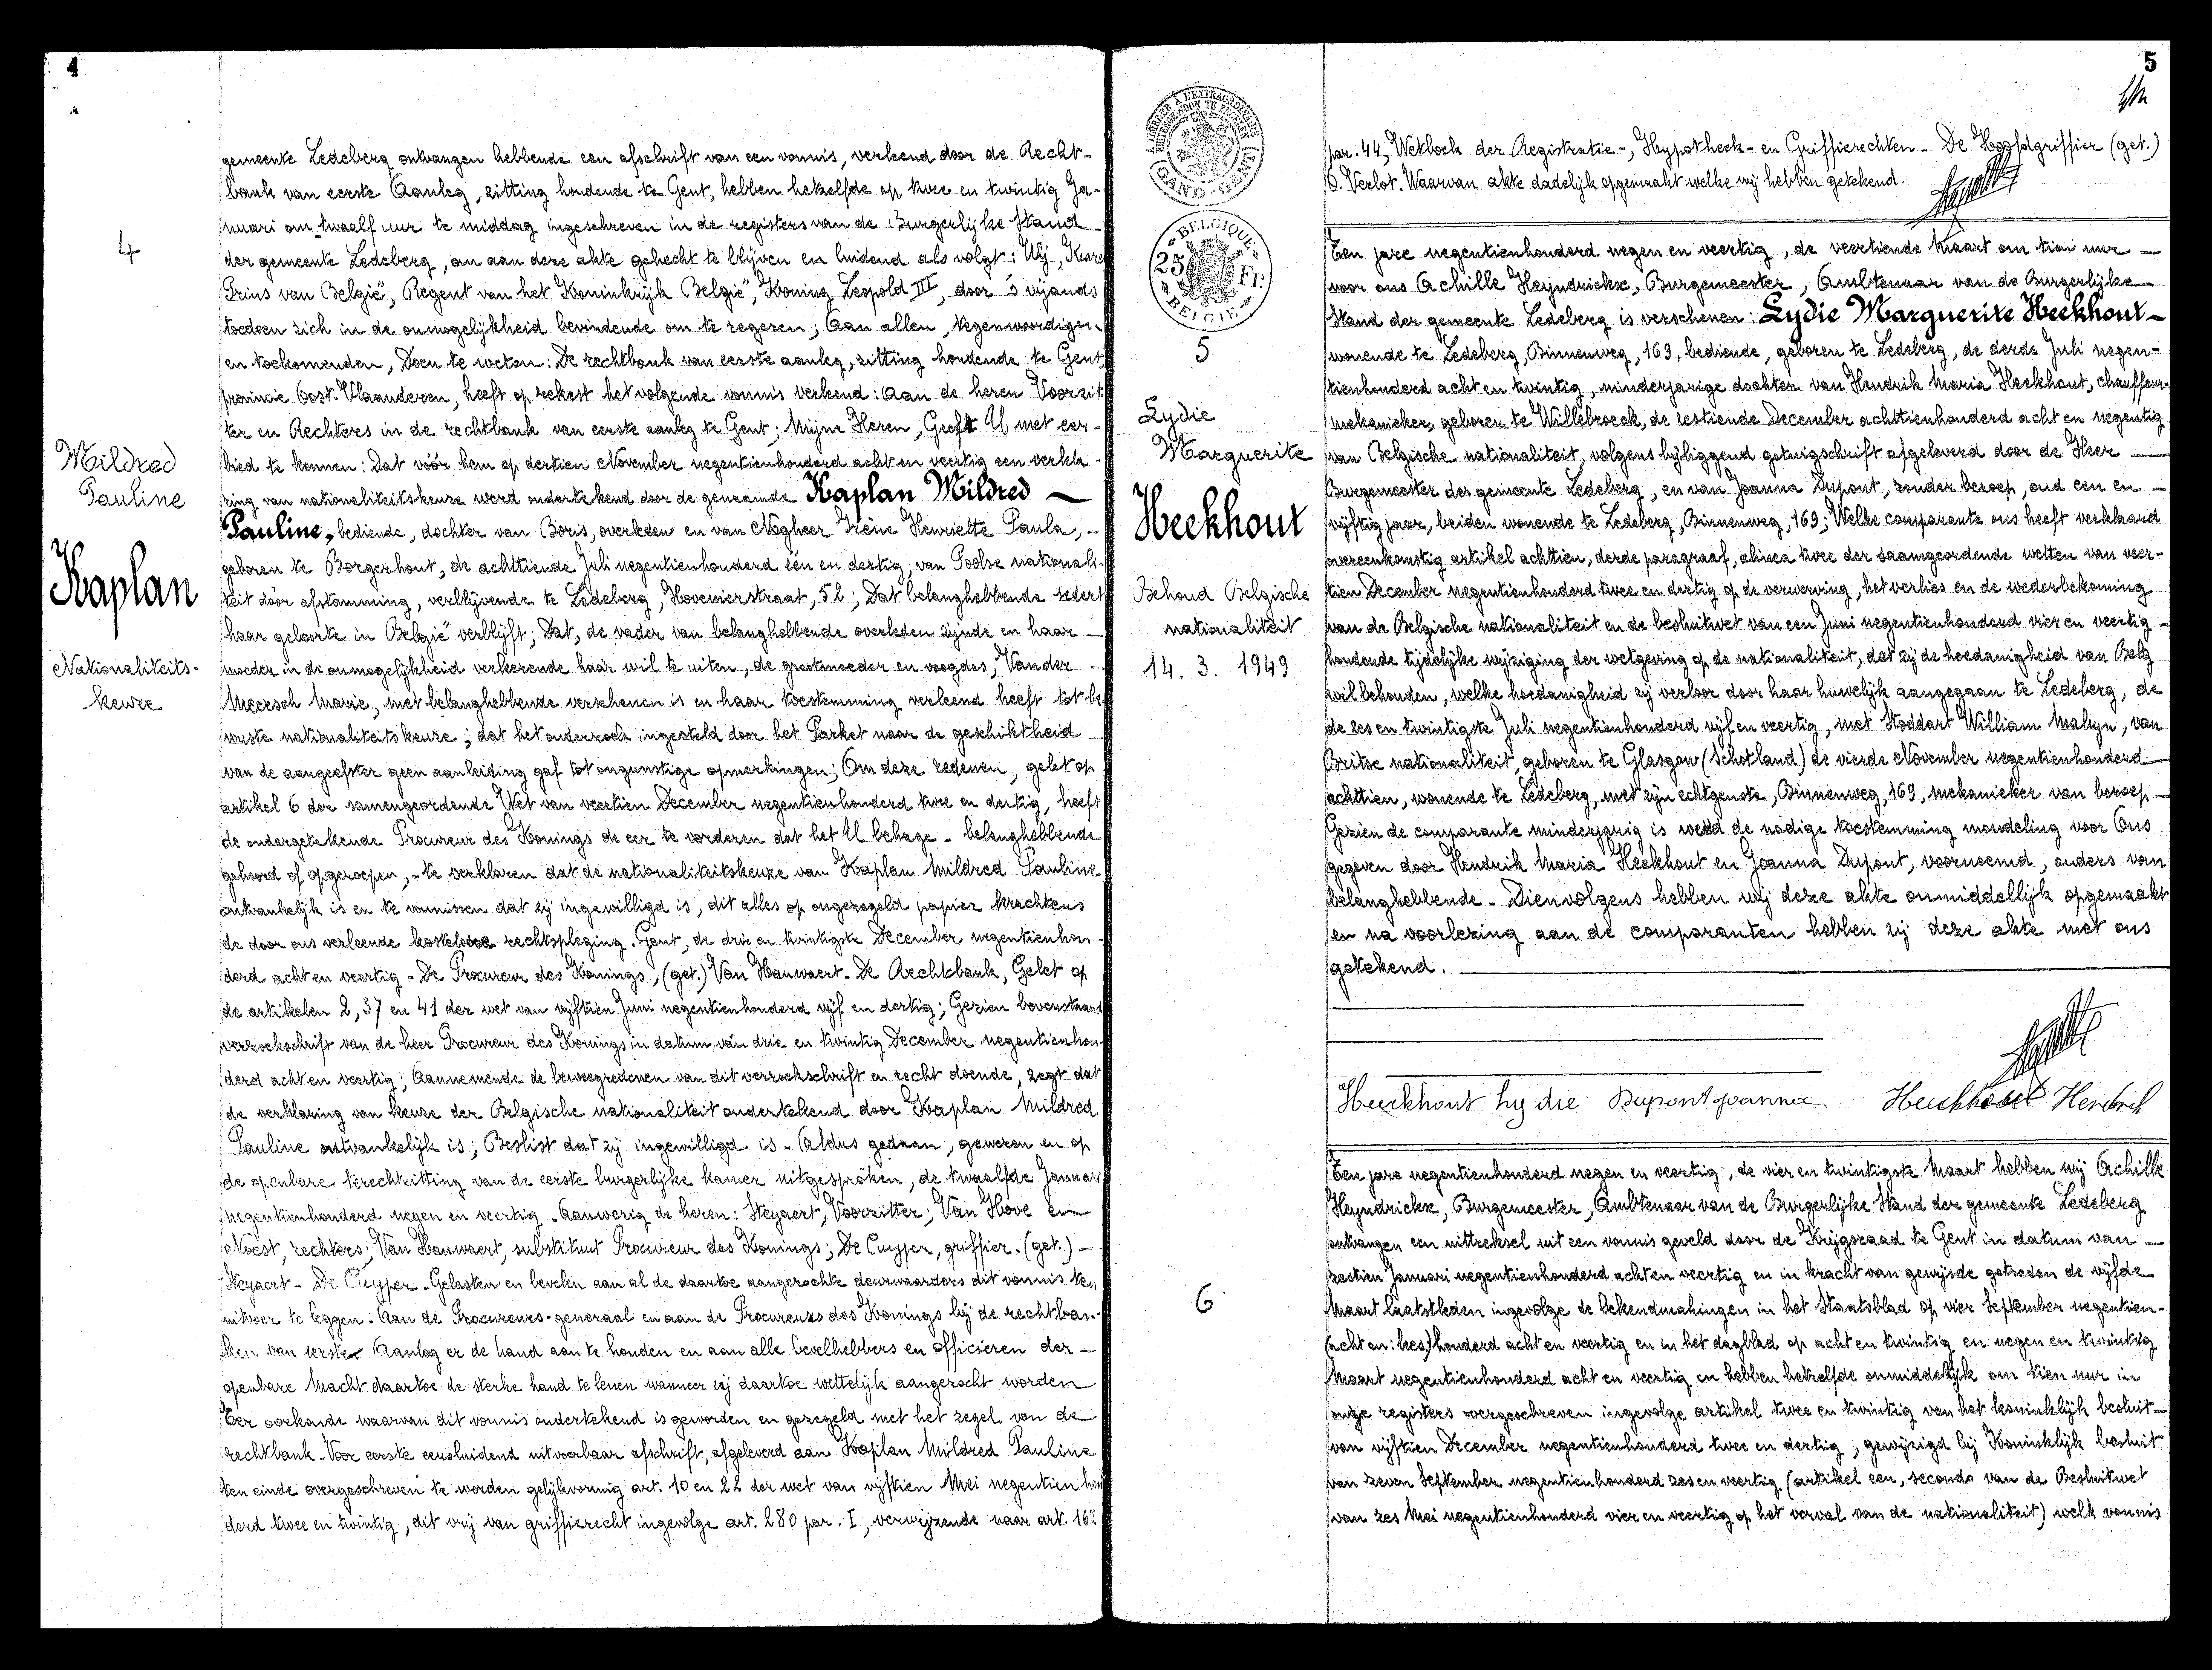 4
4
Mildred
Pauline
Kaplan
Nationaliteits-
keuze
gemeente Ledeberg ontvangen hebbende een afschrift van een vonnis, verleend door de Recht-
bank van eerste Aanleg, zitting houdende te Gent, hebben hetzelfde op twee en twintig Ja-
nuari om twaalf uur te middag ingeschreven in de registers van de Burgerlijke Stand
der gemeente Ledeberg, om aan deze akte gehecht te blijven en luidend als volgt: Wij, Karel
Prins van België, Regent van het Koninkrijk België, Koning Leopold III, door 's vijands
toedoen zich in de onmogelijkheid bevindende om te regeren; Aan allen, tegenwoordigen
en toekomenden, Doen te weten: De rechtbank van eerste aanleg, zitting houdende te Gent
provincie Oost-Vlaanderen, heeft op rekest het volgende vonnis verleend: Aan de heren Voorzit-
ter en Rechters in de rechtbank van eerste aanleg te Gent; Mijne Heren, Geeft U met eer-
bied te kennen: Dat vóór hem op dertien November negentienhonderd acht en veertig een verkla-
ring van nationaliteitskeuze werd ondertekend door de genaamde Kaplan Mildred
Pauline, bediende, dochter van Boris, overleden en van Nagheer Irène Henriette Paula,
geboren te Borgerhout, de achttiende Juli negentienhonderd één en dertig, van Poolse nationali-
teit door afstamming, verblijvende te Ledeberg, Hovenierstraat, 52; Dat belanghebbende sedert
haar geboorte in België verblijft; Dat, de vader van belanghebbende overleden zijnde en haar
moeder in de onmogelijkheid verkeerende haar wil te uiten, de grootmoeder en voogdes, Vander
Meersch Marie, met belanghebbende verschenen is en haar toestemming verleend heeft tot be-
wuste nationaliteitskeuze; dat het onderzoek ingesteld door het Parket naar de geschiktheid
van de aangeefster geen aanleiding gaf tot ongunstige opmerkingen; Om deze redenen, gelet op
artikel 6 der samengeordende Wet van veertien December negentienhonderd twee en dertig, heeft
de ondergetekende Procureur des Konings de eer te vorderen dat het U behage - belanghebbende
gehoord of opgeroepen, - te verklaren dat de nationaliteitskeuze van Kaplan Mildred Pauline
ontvankelijk is en te vonnissen dat zij ingewilligd is, dit alles op ongezegeld papier krachtens
de door ons verleende kosteloze rechtspleging. Gent, de drie en twintigste December negentienhon-
derd acht en veertig - De Procureur des Konings, (get.) Van Hauwaert - De Rechtbank, Gelet op
de artikelen 2, 37 en 41 der wet van vijftien Juni negentienhonderd vijf en dertig; Gezien bovenstaand
verzoekschrift van de heer Procureur des Konings in datum van drie en twintig December negentienhon-
derd acht en veertig; Aannemende de beweegredenen van dit verzoekschrift en recht doende, zegt dat
de verklaring van keuze der Belgische nationaliteit ondertekend door Kaplan Mildred
Pauline ontvankelijk is; Beslist dat zij ingewilligd is - Aldus gedaan, gewezen en op
de openbare terechtzitting van de eerste burgerlijke kamer uitgesproken, de twaalfde Januari
negentienhonderd negen en veertig - Aanwezig de heren: Steyaert, Voorzitter; Van Hove en
Noest, rechters; Van Hauwaert, substituut Procureur des Konings; De Cuyper, griffier. (get.) -
Steyaert - De Cuyper - Gelasten en bevelen aan al de daartoe aangezochte deurwaarders dit vonnis ten
uitvoer te leggen: Aan de Procureurs-generaal en aan de Procureurs des Konings bij de rechtban-
ken van eerste Aanleg er de hand aan te houden en aan alle bevelhebbers en officieren der -
openbare Macht daartoe de sterke hand te lenen wanneer zij daartoe wettelijk aangezocht worden
Ter oorkonde waarvan dit vonnis ondertekend is geworden en gezegeld met het zegel van de
rechtbank - Voor eerste eensluidend uitvoerbaar afschrift, afgeleverd aan Kaplan Mildred Pauline
ten einde overgeschreven te worden gelijkvormig art. 10 en 22 der wet van vijftien Mei negentien hon
derd twee en twintig, dit vrij van griffierecht ingevolge art. 280 par. I, verwijzende naar art. 162
5
A TIMBRER À L'EXTRAORDINAIRE
BUITENGEWOON TE ZEGELEN
(GAND-GENT)
BELGIQUE
25 Fr.
BELGIE
5
Lydie
Marguerite
Heekhout
Behoud Belgische
nationaliteit
14. 3. 1949
6
par. 44, Wetboek der Registratie-, Hypotheek- en Griffierechten - De Hoofdgriffier (get.)
O. Verlot. Waarvan akte dadelijk opgemaakt welke wij hebben getekend.
Ten jare negentienhonderd negen en veertig, de veertiende Maart om tien uur -
voor ons Achille Heyndrickx, Burgemeester, Ambtenaar van de Burgerlijke
Stand der gemeente Ledeberg is verschenen: Lydie Marguerite Heekhout -
wonende te Ledeberg, Binnenweg, 169, bediende, geboren te Ledeberg, de derde Juli negen-
tienhonderd acht en twintig, minderjarige dochter van Hendrik Maria Heekhout, chauffeur-
mekanieker, geboren te Willebroeck, de zestiende December achttienhonderd acht en negentig
van Belgische nationaliteit, volgens bijliggend getuigschrift afgeleverd door de Heer
Burgemeester der gemeente Ledeberg, en van Joanna Dupont, zonder beroep, oud een en -
vijftig jaar, beiden wonende te Ledeberg, Binnenweg, 169; Welke comparante ons heeft verklaard
overeenkomstig artikel achttien, derde paragraaf, alinea twee der saamgeordende wetten van veer-
tien December negentienhonderd twee en dertig op de verwerving, het verlies en de wederbekoming
van de Belgische nationaliteit en de besluitwet van een Juni negentienhonderd vier en veertig -
houdende tijdelijke wijziging der wetgeving op de nationaliteit, dat zij de hoedanigheid van Belg
wil behouden, welke hoedanigheid zij verloor door haar huwelijk aangegaan te Ledeberg, de
de zes en twintigste Juli negentienhonderd vijf en veertig, met Stoddart William Malyn, van
Britse nationaliteit, geboren te Glasgow (Schotland) de vierde November negentienhonderd
achttien, wonende te Ledeberg, met zijn echtgenote, Binnenweg, 169, mekanieker van beroep -
Gezien de comparante minderjarig is werd de nodige toestemming mondeling voor Ons
gegeven door Hendrik Maria Heekhout en Joanna Dupont, voornoemd, ouders van
belanghebbende - Dienvolgens hebben wij deze akte onmiddellijk opgemaakt
en na voorlezing aan de comparanten hebben zij deze akte met ons
getekend.
Heeckhout Lydie Dupont Joanna Heeckhout Hendrik
Ten jare negentienhonderd negen en veertig, de vier en twintigste Maart hebben wij Achille
Heyndrickx, Burgemeester, Ambtenaar van de Burgerlijke Stand der gemeente Ledeberg
ontvangen een uittreksel uit een vonnis geveld door de Krijgsraad te Gent in datum van -
zestien Januari negentienhonderd acht en veertig en in kracht van gewijsde getreden de vijfde
Maart laatstleden ingevolge de bekendmakingen in het Staatsblad op vier September negentien-
(acht en: lees) honderd acht en veertig en in het dagblad op acht en twintig en negen en twintig
Maart negentienhonderd acht en veertig en hebben hetzelfde onmiddellijk om tien uur in
onze registers overgeschreven ingevolge artikel twee en twintig van het koninklijk besluit -
van vijftien December negentienhonderd twee en dertig, gewijzigd bij Koninklijk besluit
van zeven September negentienhonderd zes en veertig (artikel een, secundo van de Besluitwet
van zes Mei negentienhonderd vier en veertig op het verval van de nationaliteit) welk vonnis